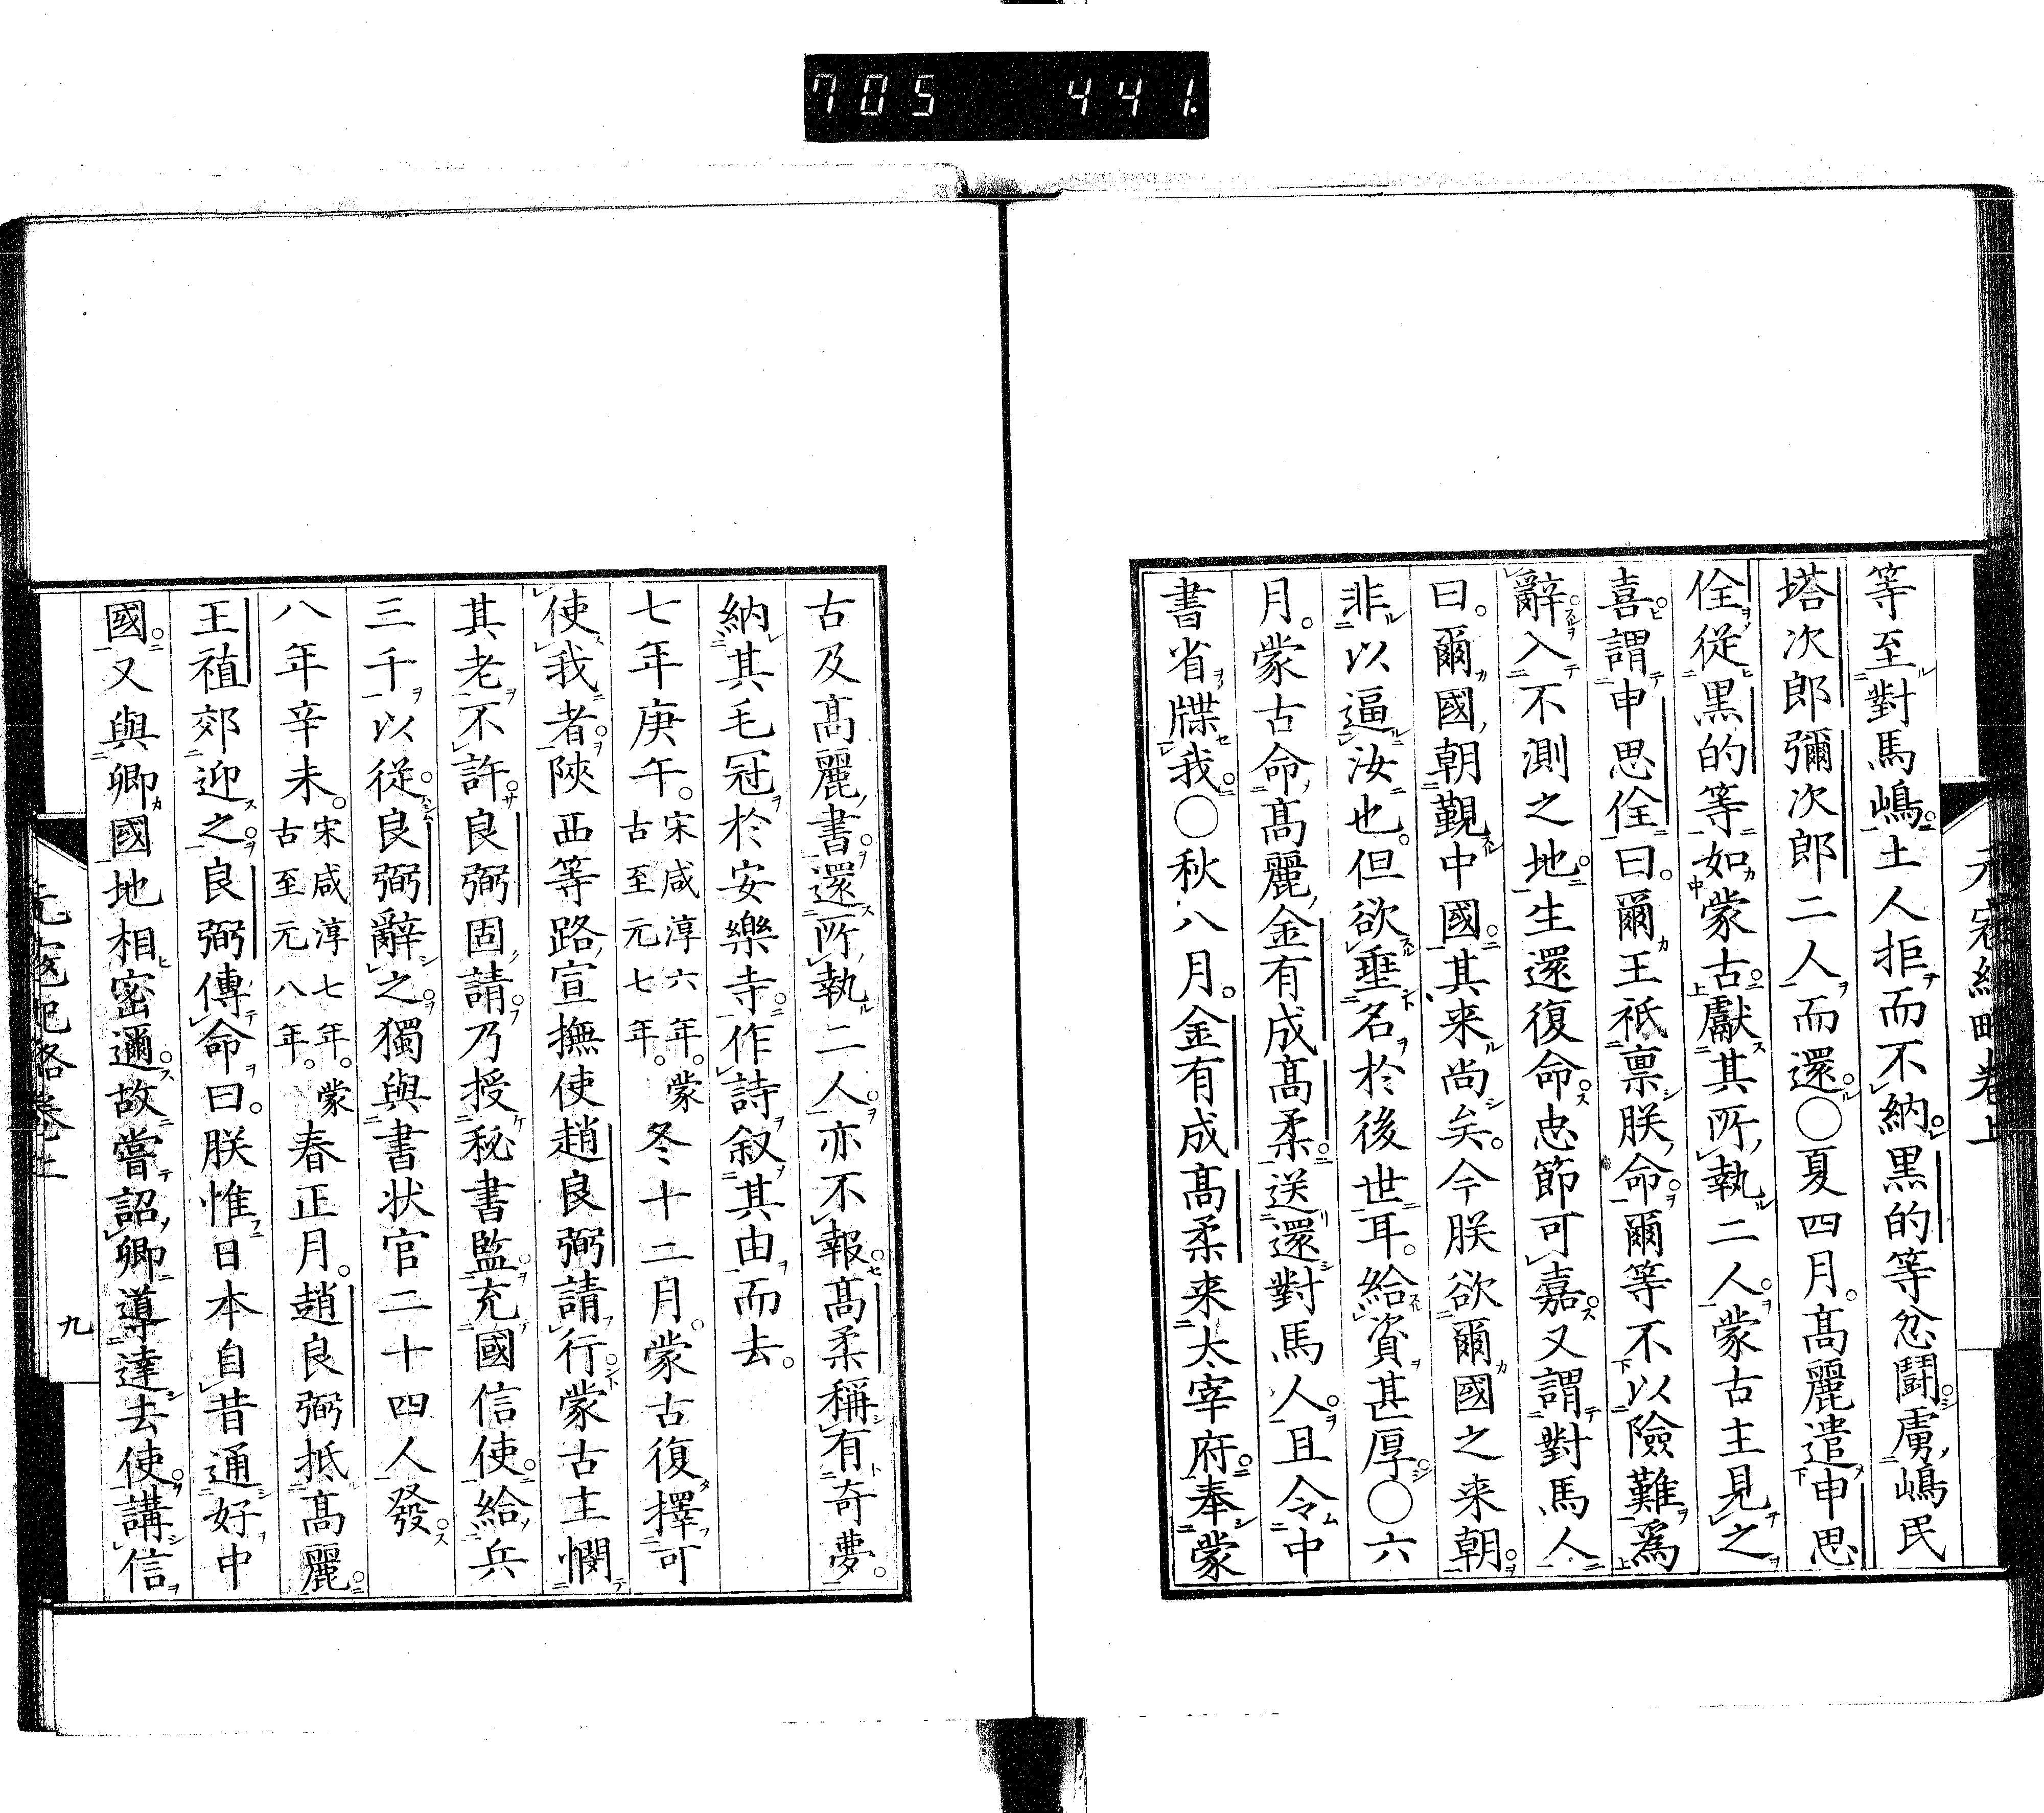 705 441.
等至對馬嶋土人拒而不納黒的等忿鬪虜嶋民
塔次郎彌次郎二人而還○夏四月。高麗遣申思
佺從黒的等如蒙古獻其所執二人蒙古主見之
喜謂申思佺曰。爾王祗禀朕命爾等不以險難爲
辭入不測之地生還復命忠節可嘉又謂對馬人
曰。爾國朝覲中國其来尚矣。今朕欲爾國之来朝
非以逼汝也。但欲垂名於後世耳。給資甚厚○六
月。蒙古命高麗金有成高柔送還對馬人且令中
書省牒我○秋八月。金有成高柔来太宰府奉蒙
元寇紀略卷上
古及髙麗書還所執二人亦不報髙柔稱有奇夢。
納其毛冠於安樂寺作詩叙其由而去。
七年庚午。宋咸淳六年。蒙古至元七年。冬十二月。蒙古復擇可
使我者陝西等路宣撫使趙良弼請行蒙古主憫
其老不許良弼固請乃授秘書監充國信使給兵
三千以從良弼辭之獨與書状官二十四人發
八年辛未。宋咸淳七年。蒙古至元八年。春正月。趙良弼抵髙麗
王禃郊迎之良弼傳命曰。朕惟日本自昔通好中
國又與卿國地相密邇故嘗詔卿導達去使講信
元寇紀略卷上
九